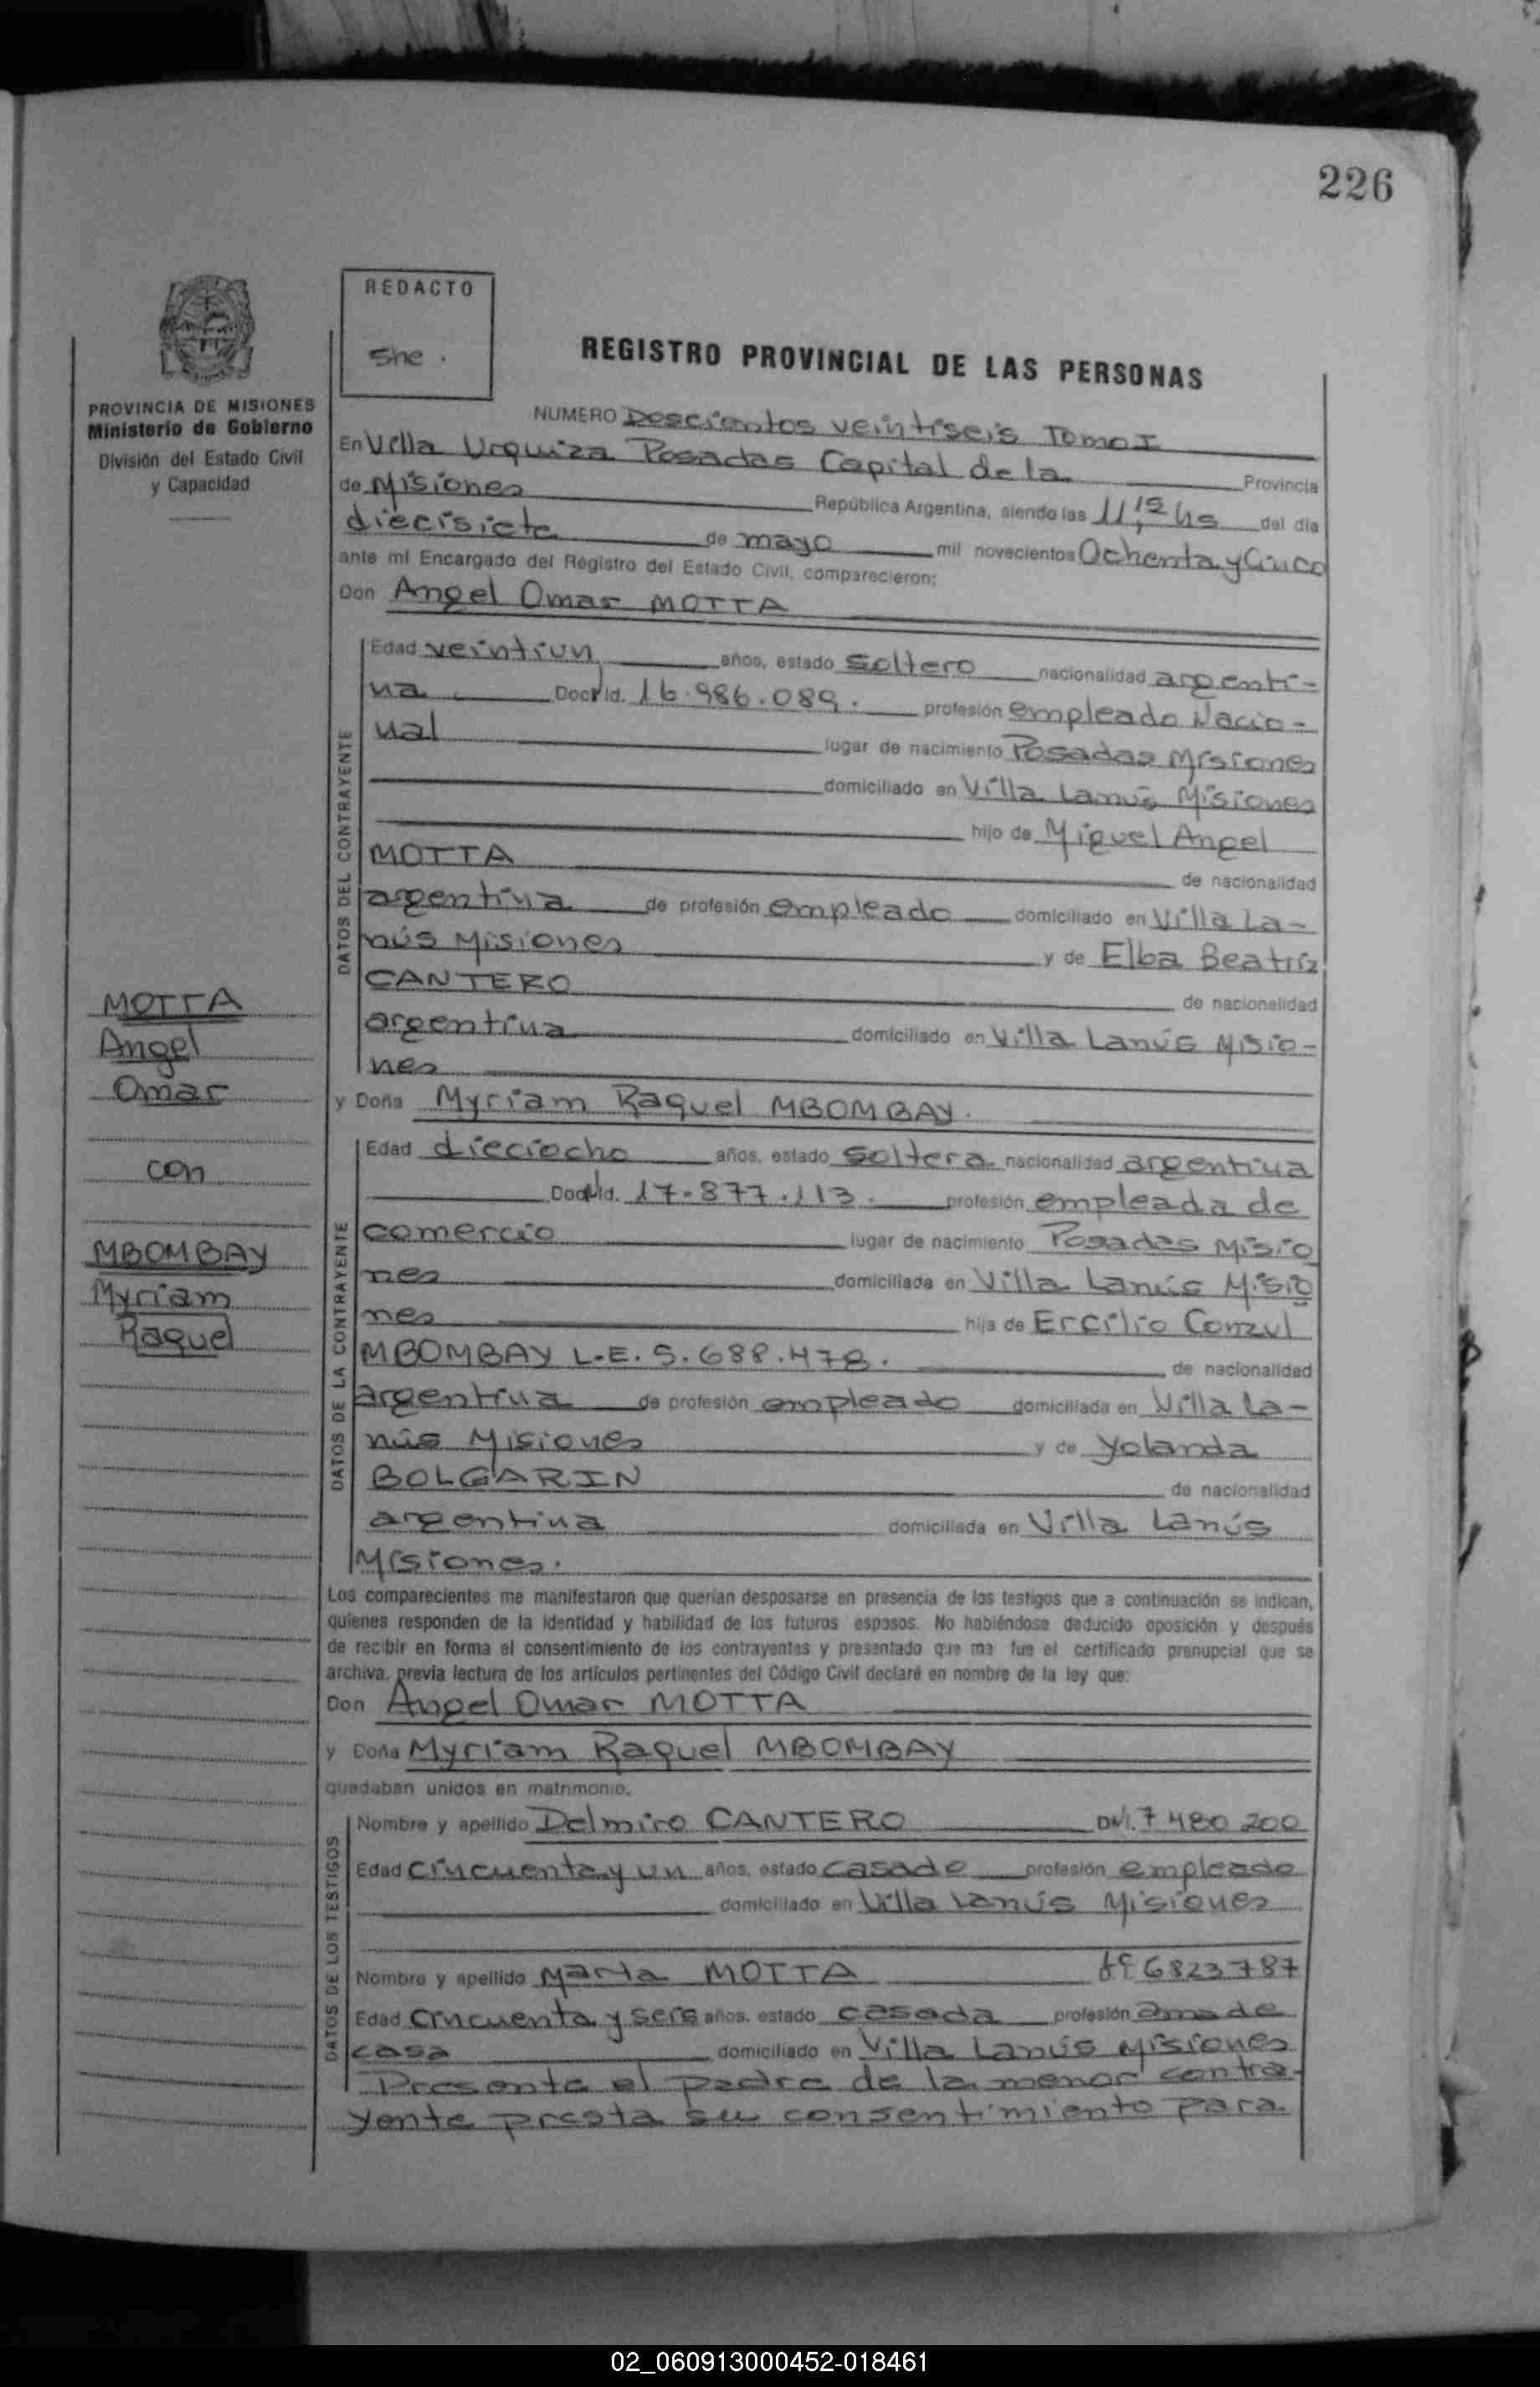 226
REDACTO
She.
REGISTRO PROVINCIAL DE LAS PERSONAS
PROVINCIA DE MISIONES
Ministerio de Gobierno
División del Estado Civil
y Capacidad
NUMERO Doscientos veintiseis Tomo I
En Villa Urquiza Posadas Capital de la Provincia
de Misiones República Argentina, siendo las 11,15 hs del día
diecisiete de mayo mil novecientos Ochenta y Cinco
ante mí Encargado del Registro del Estado Civil, comparecieron:
Don Angel Omar MOTTA
DATOS DEL CONTRAYENTE
Edad veintiun años, estado soltero nacionalidad argenti-
na Doc. Id. 16.986.089. profesión empleado Nacio-
nal lugar de nacimiento Posadas Misiones
domiciliado en Villa Lanús Misiones
hijo de Miguel Angel
MOTTA de nacionalidad
argentina de profesión empleado domiciliado en Villa La-
nús Misiones y de Elba Beatriz
CANTERO de nacionalidad
argentina domiciliado en Villa Lanús Misio-
nes
y Doña Myriam Raquel MBOMBAY.
MOTTA
Angel
Omar
con
MBOMBAY
Myriam
Raquel
DATOS DE LA CONTRAYENTE
Edad dieciocho años, estado soltera nacionalidad argentina
Doc. Id. 17.877.113. profesión empleada de
comercio lugar de nacimiento Posadas Misio
nes domiciliada en Villa Lanús Misio
nes hija de Ercilio Conzul
MBOMBAY L.E. 5.688.478. de nacionalidad
argentina de profesión empleado domiciliada en Villa La-
nús Misiones y de Yolanda
BOLGARIN de nacionalidad
argentina domiciliada en Villa Lanús
Misiones.
Los comparecientes me manifestaron que querían desposarse en presencia de los testigos que a continuación se indican,
quienes responden de la identidad y habilidad de los futuros esposos. No habiéndose deducido oposición y después
de recibir en forma el consentimiento de los contrayentes y presentado que me fue el certificado prenupcial que se
archiva, previa lectura de los artículos pertinentes del Código Civil declaré en nombre de la ley que:
Don Angel Omar MOTTA
y Doña Myriam Raquel MBOMBAY
quedaban unidos en matrimonio.
DATOS DE LOS TESTIGOS
Nombre y apellido Delmiro CANTERO DNI. 7 480 200
Edad cincuenta y un años, estado casado profesión empleado
domiciliado en Villa Lanús Misiones
Nombre y apellido Marta MOTTA 6823787
Edad cincuenta y seis años, estado casada profesión ama de
casa domiciliado en Villa Lanús Misiones
Presente el padre de la menor contra-
yente presta su consentimiento para
02_060913000452-018461